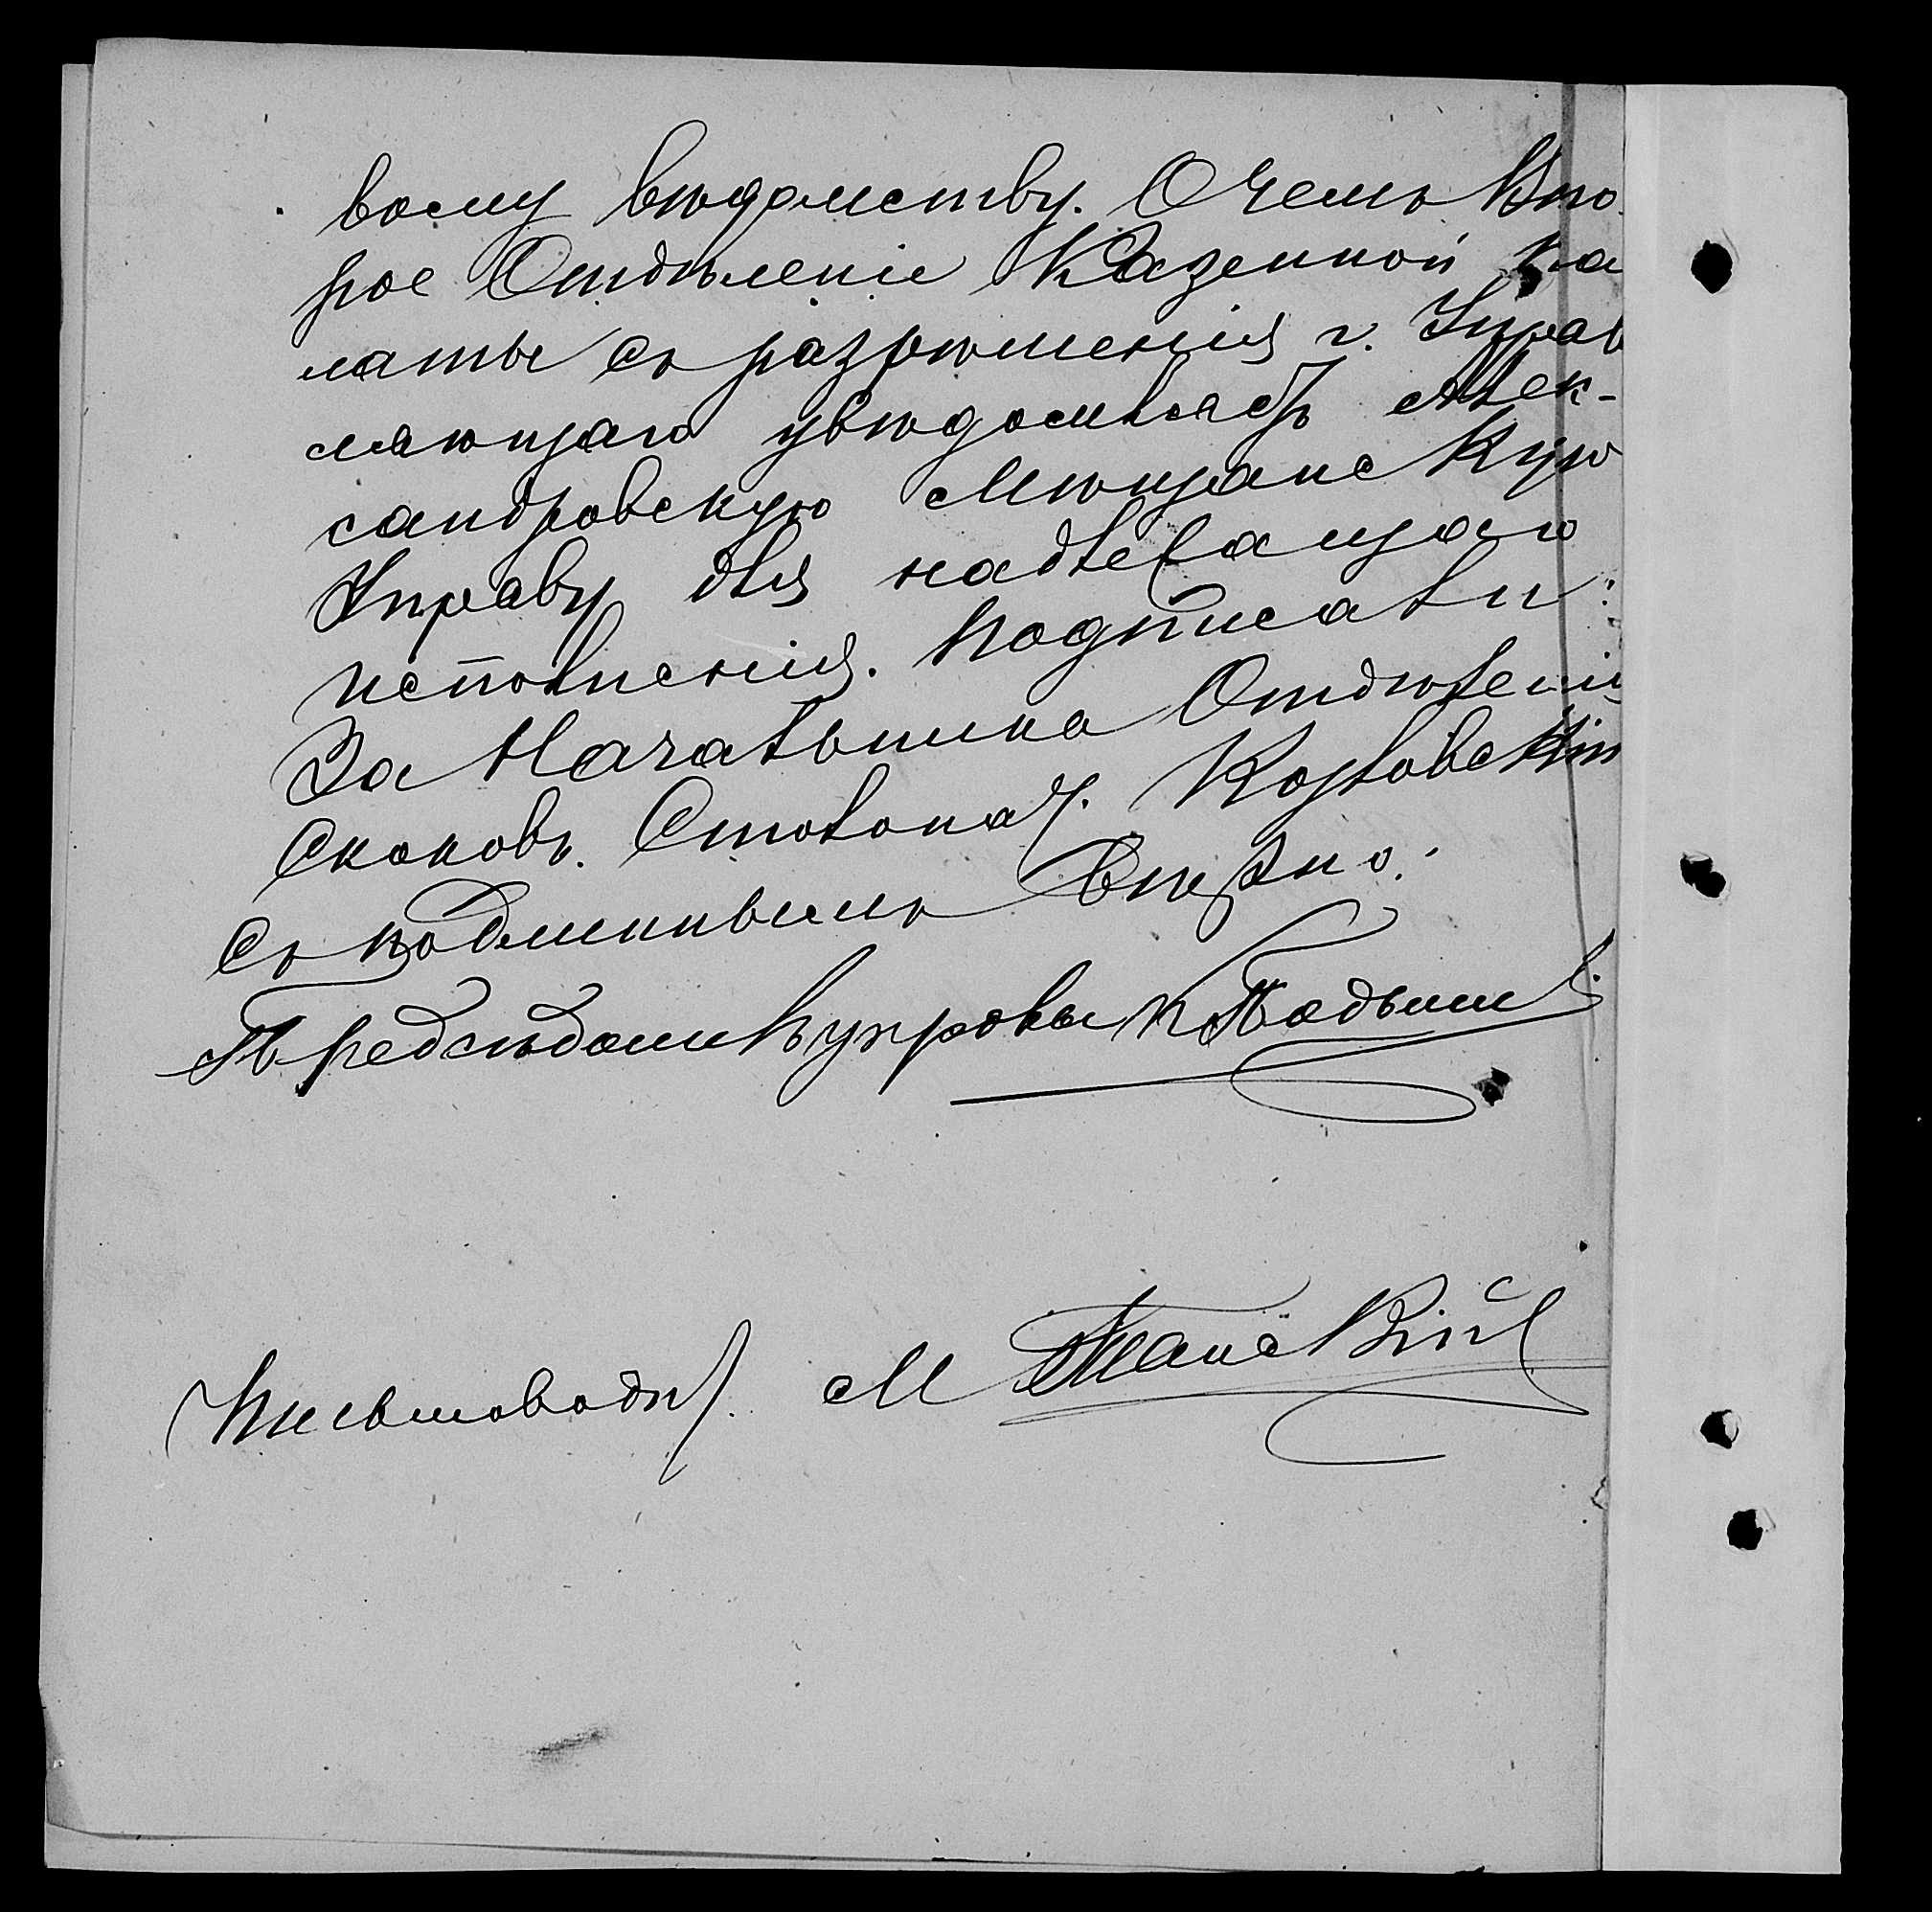 вому вѣдомству. О чемъ Вто
рое Отдѣленіе Казенной Па
латы съ разрѣшенія г. Управ
ляющаго увѣдомляетъ Алек-
сандровскую Мѣщанскую
Управу для надлежащаго
исполненія. Подписали:
За Начальника Отдѣленія
Скоковъ. Столонач. Козловскій
Съ подлиннымъ вѣрно:
Предсѣдатель управы
Письмовод. М